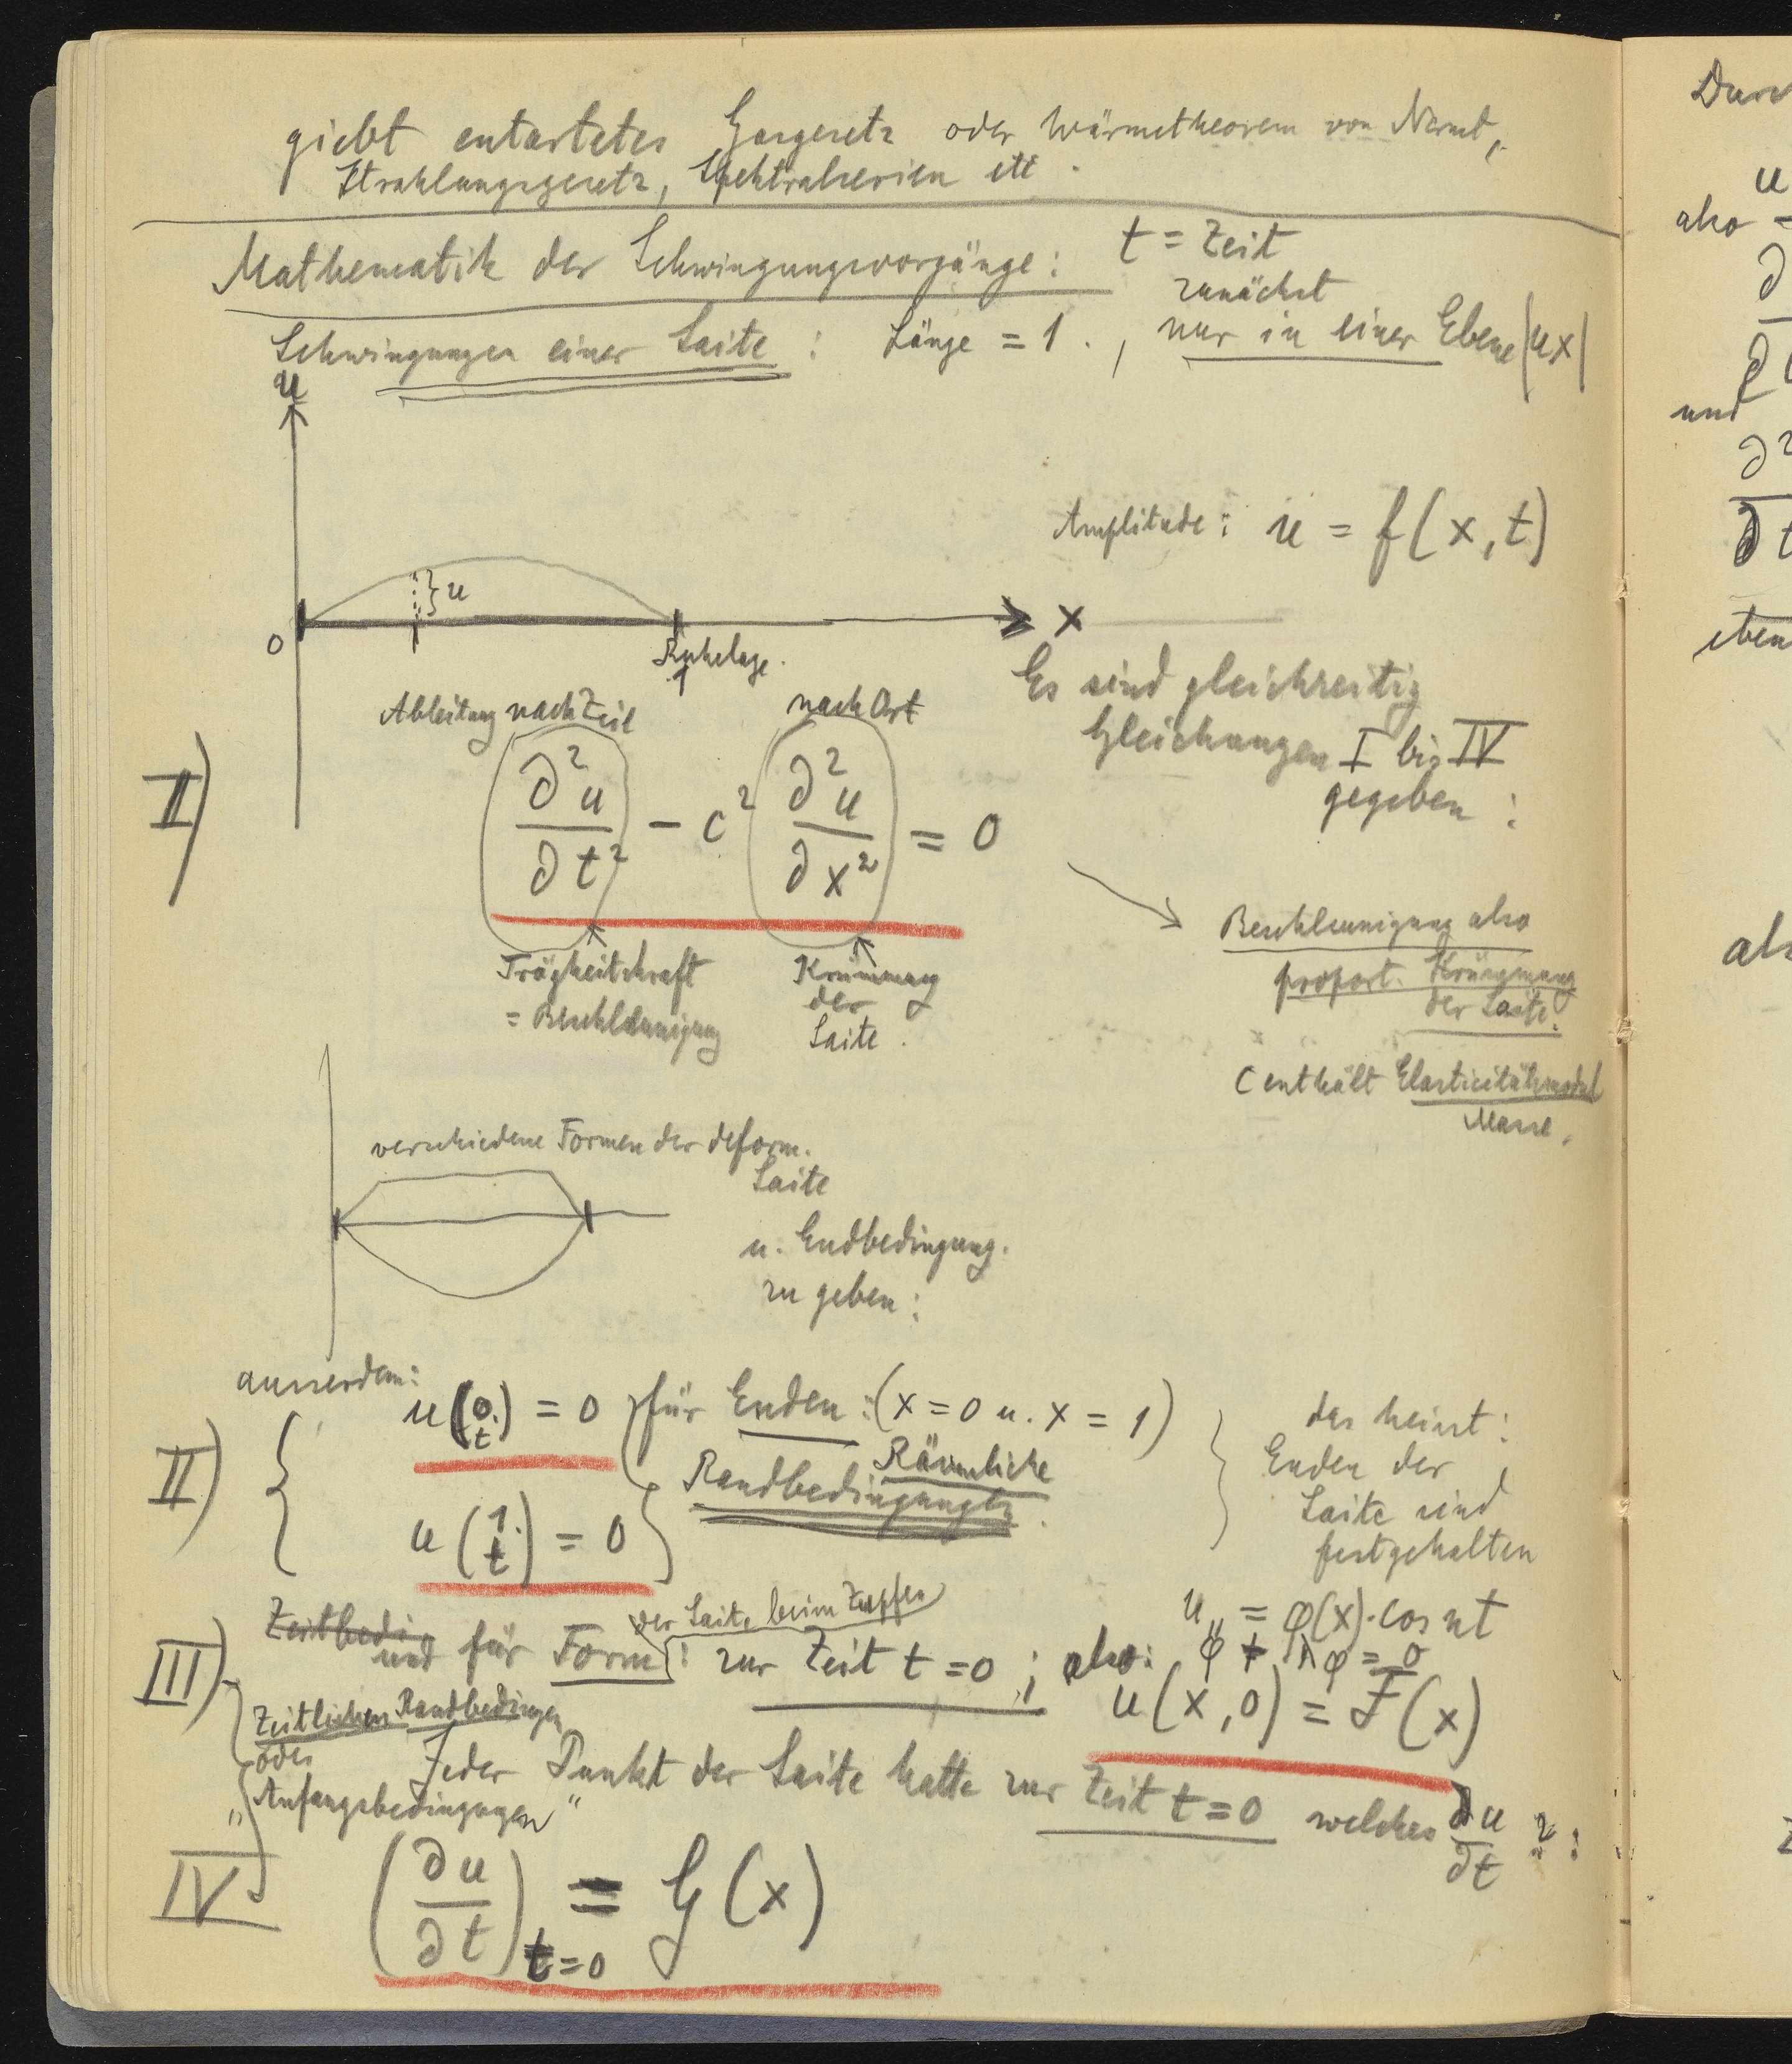 giebt entartetes Gasgesetz oder Wärmetheorem von Nernst,
Strahlungsgesetz, Spektralserien etc.
Mathematik der Schwingungsvorgänge: t = Zeit
zunächst
Schwingungen einer Saite: Länge = 1., nur in einer Ebene |ux|
u
Amplitude: u = f(x,t)
} u
0
x
Ruhelage.
1
Es sind gleichzeitig
Gleichungen I bis IV
gegeben:
Ableitung nach Zeit nach Ort
I) ∂²u/∂t² − c² ∂²u/∂x² = 0
Trägheitskraft
= Beschleunigung
Krümmung
der
Saite.
Beschleunigung also
proport. Krümmung
der Saite.
C enthält Elasticitätsmodul
Masse.
verschiedene Formen der deform.
Saite
u. Endbedingung.
zu geben:
ausserdem:
II) u(0,t) = 0 für Enden: (x = 0 u. x = 1)
Räumliche
Randbedingungen.
u(1,t) = 0
das heisst:
Enden der
Saite sind
festgehalten
u = φ(x)·cos nt
φ'' + λφ = 0
der Saite beim Zupfen
Zeitbedig
III) und für Form: zur Zeit t = 0; also: u(x,0) = F(x)
Zeitlichen Randbedingen
oder
„Anfangsbedingungen“
Jeder Punkt der Saite hatte zur Zeit t = 0 welches ∂u/∂t ?:
IV (∂u/∂t) t=0 = G(x)
Durc
u
also
∂
∂
und
∂²
∂t
eben
als